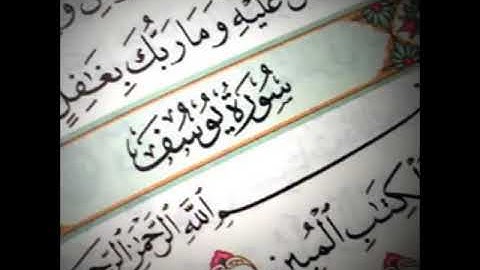 عَلَيْهِ وَمَا رَبُّكَ بِغَٰفِلٍ
سُورَةُ يُوسُفَ
ـسْمِ ٱللَّهِ ٱلرَّحْمَٰنِ ٱلرَّحِـ
ٱلْكِتَٰبِ ٱلْمُبِينِ